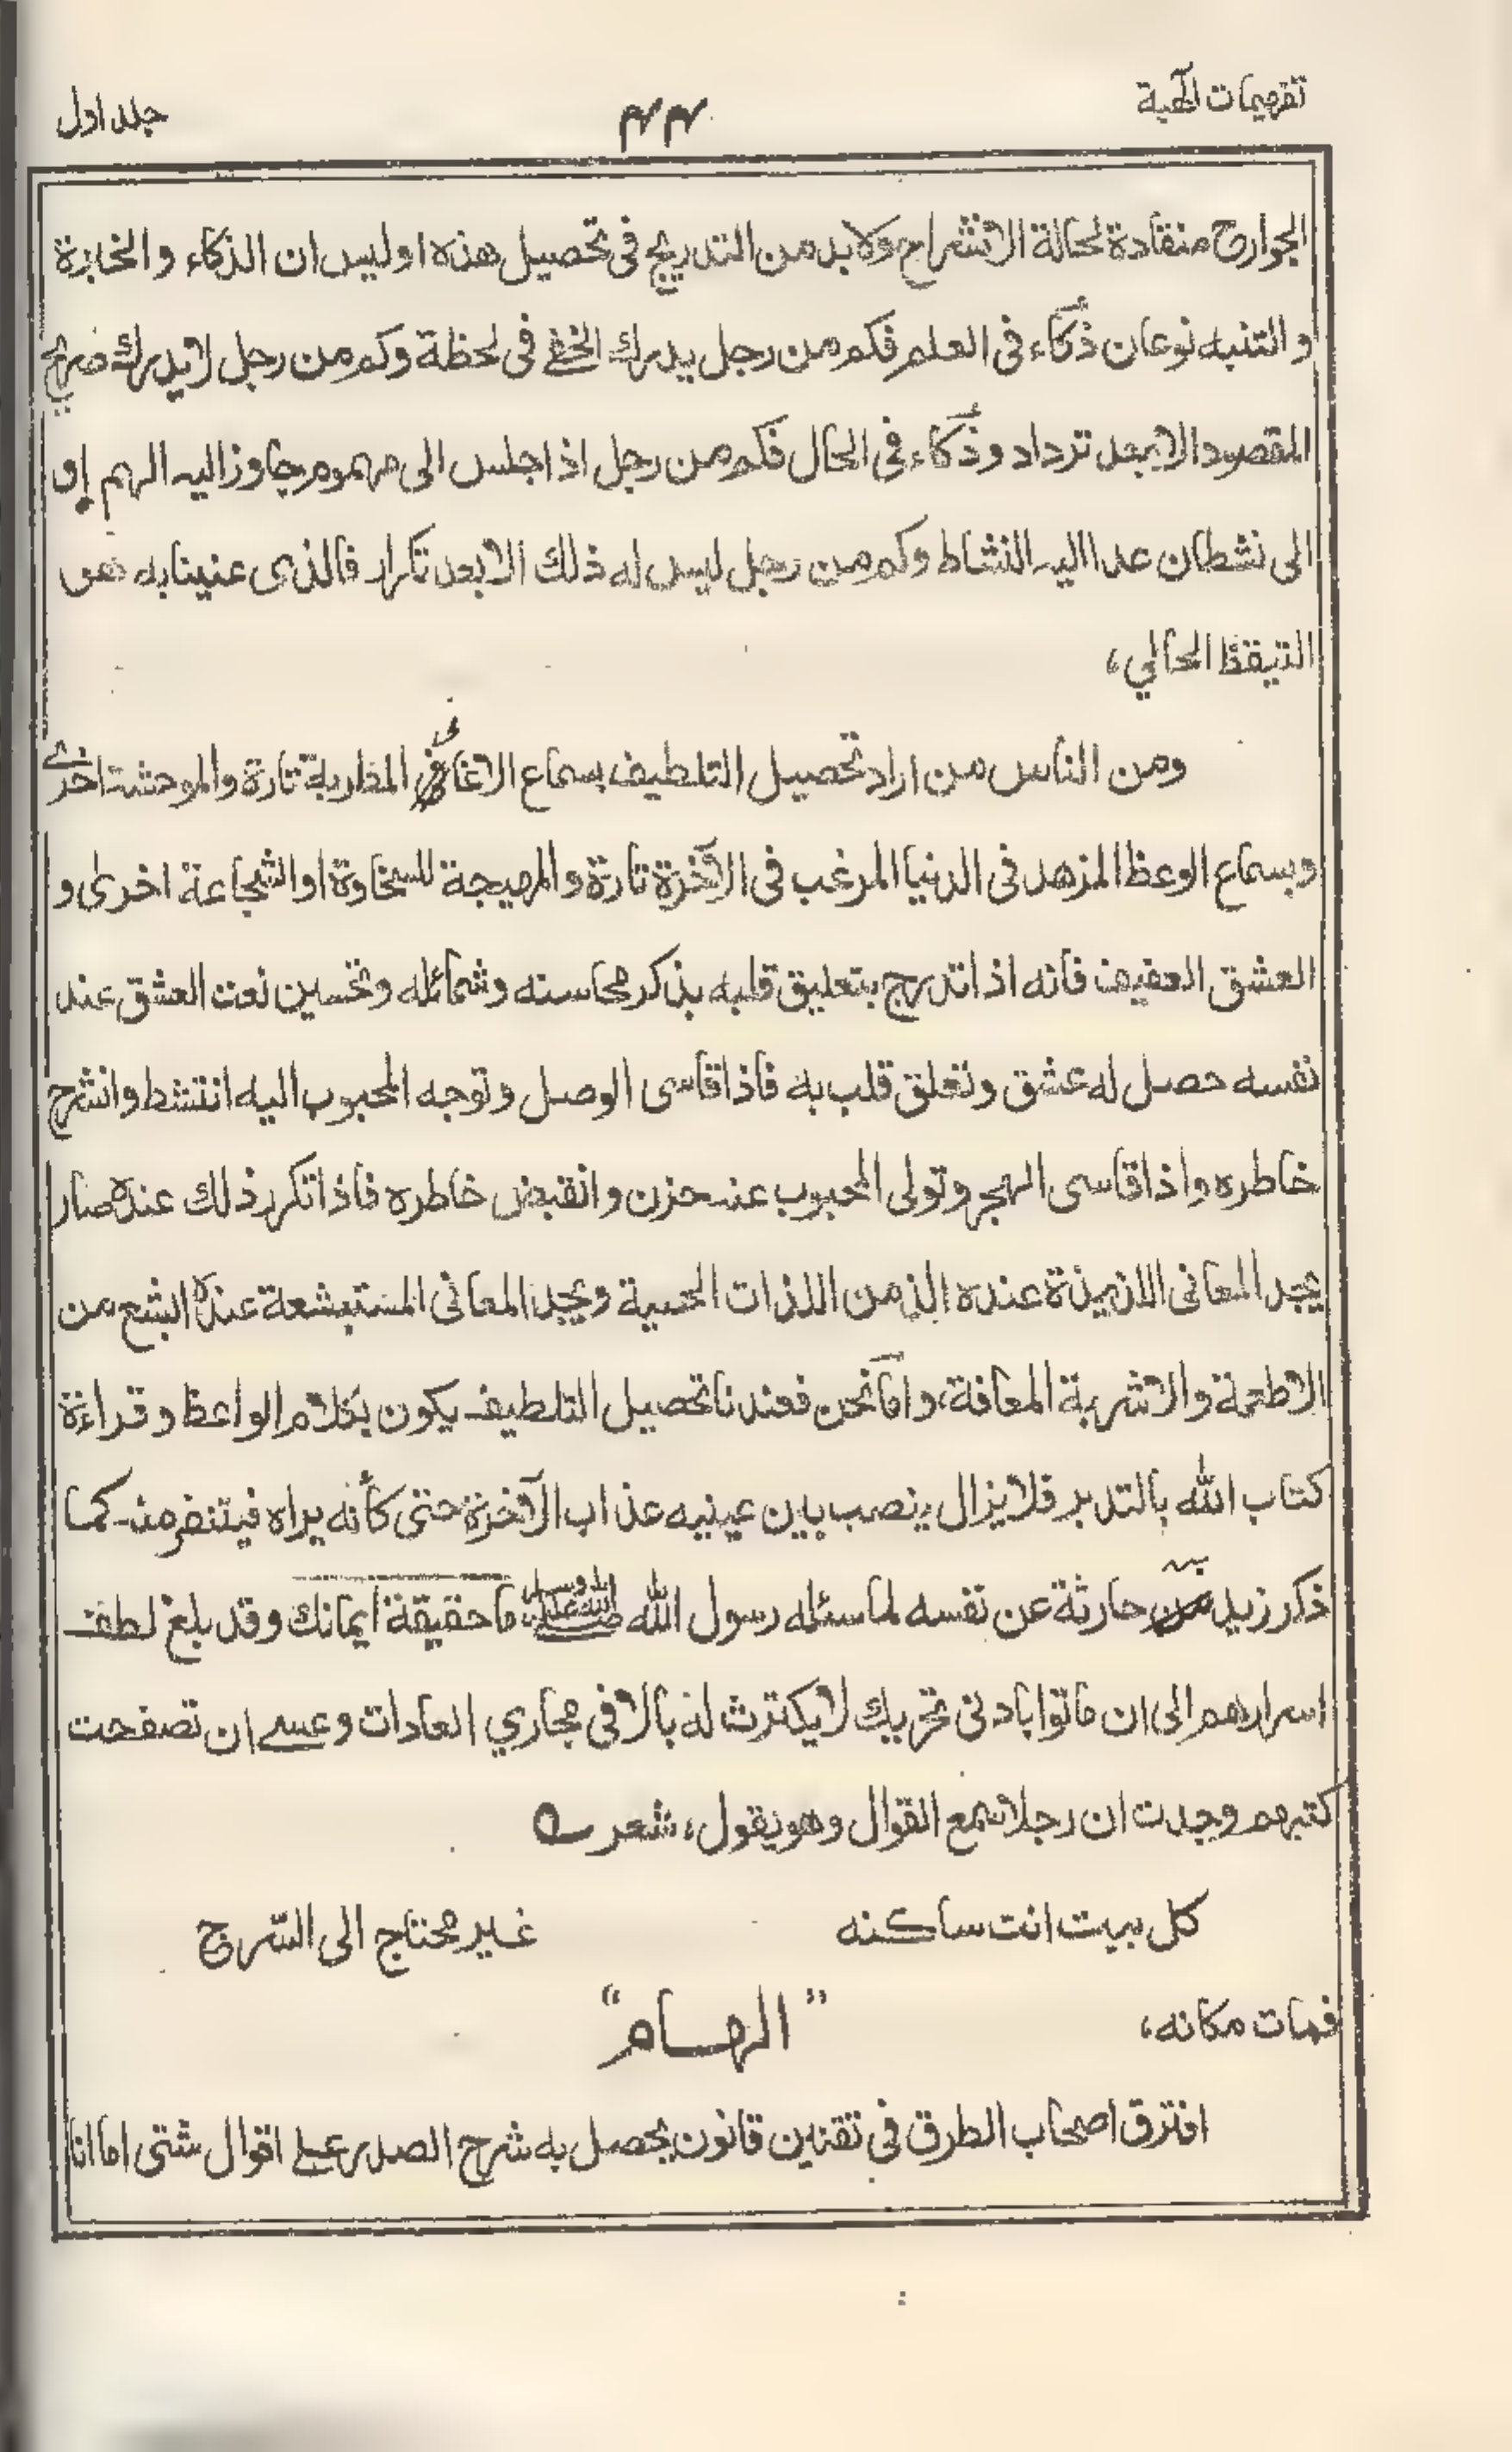 تفهيمات الٰهية
۴۴
جلد اول
الجوارح منقادة لحالة الانشراح ولابد من التدريج فى تحصيل هذه اوليس ان الذكاء و
و التنبه نوعان ذكاء فى العلم فكم من رجل يدرك الخفے فى لحظة وكم من رجل لايدرك صريح
المقصود الابعد ترداد وذكاء فى الحال فكم من رجل اذا جلس الى مهموم جاوز اليه الهم او
الى نشطان عدا اليه النشاط وكم من رجل ليس له ذلك الابعد تكرار فالذى عنينا به هو
التيقظ الحالي،
ومن الناس من اراد تحصيل التلطيف بسماع الاغانى المطربة تارة والموحشة اخرے
وبسماع الوعظ المزهد فى الدنيا المرغب فى الآخرة تارة والمهيجة للسخاوة او الشجاعة اخرىٰ و
العشق العفيف فانه اذا تدرج بتعليق قلبه بذكر محاسنه وشمائله وتحسين نعت العشق عند
نفسه حصل له عشق وتعلق قلب به فاذا قاسى الوصل وتوجه المحبوب اليه انتشط وانشرح
خاطره واذا قاسى الهجر وتولى المحبوب عنه حزن وانقبض خاطره فاذا تكرر ذلك عنده صار
يجد المعانى اللذيذة عنده الذ من اللذات الحسية ويجد المعانى المستبشعة عنده ابشع من
الاطعمة والاشربة المعافة، واما نحن فعندنا تحصيل التلطيف يكون بكلام الواعظ وقراءة
كتاب الله بالتدبر فلايزال ينصب بين عينيه عذاب الآخرة حتى كأنه يراه فيتنفر منه كما
ذكر زيد بن حارثة عن نفسه لما سئله رسول الله صلى الله عليه وسلم ما حقيقة ايمانك وقد بلغ لطف
اسرارهم الى ان ماتوا بادنى تحريك لايكترث له بالا فى مجاري العادات وعسے ان تصفحت
كتبهم وجدت ان رجلا سمع القوال وهو يقول، شعر ؎
كل بيت انت ساكنه غير محتاج الى السّرج
فمات مكانه،
"الهام"
افترق اصحاب الطرق في تقنين قانون يحصل به شرح الصدر علے اقوال شتى اما انا